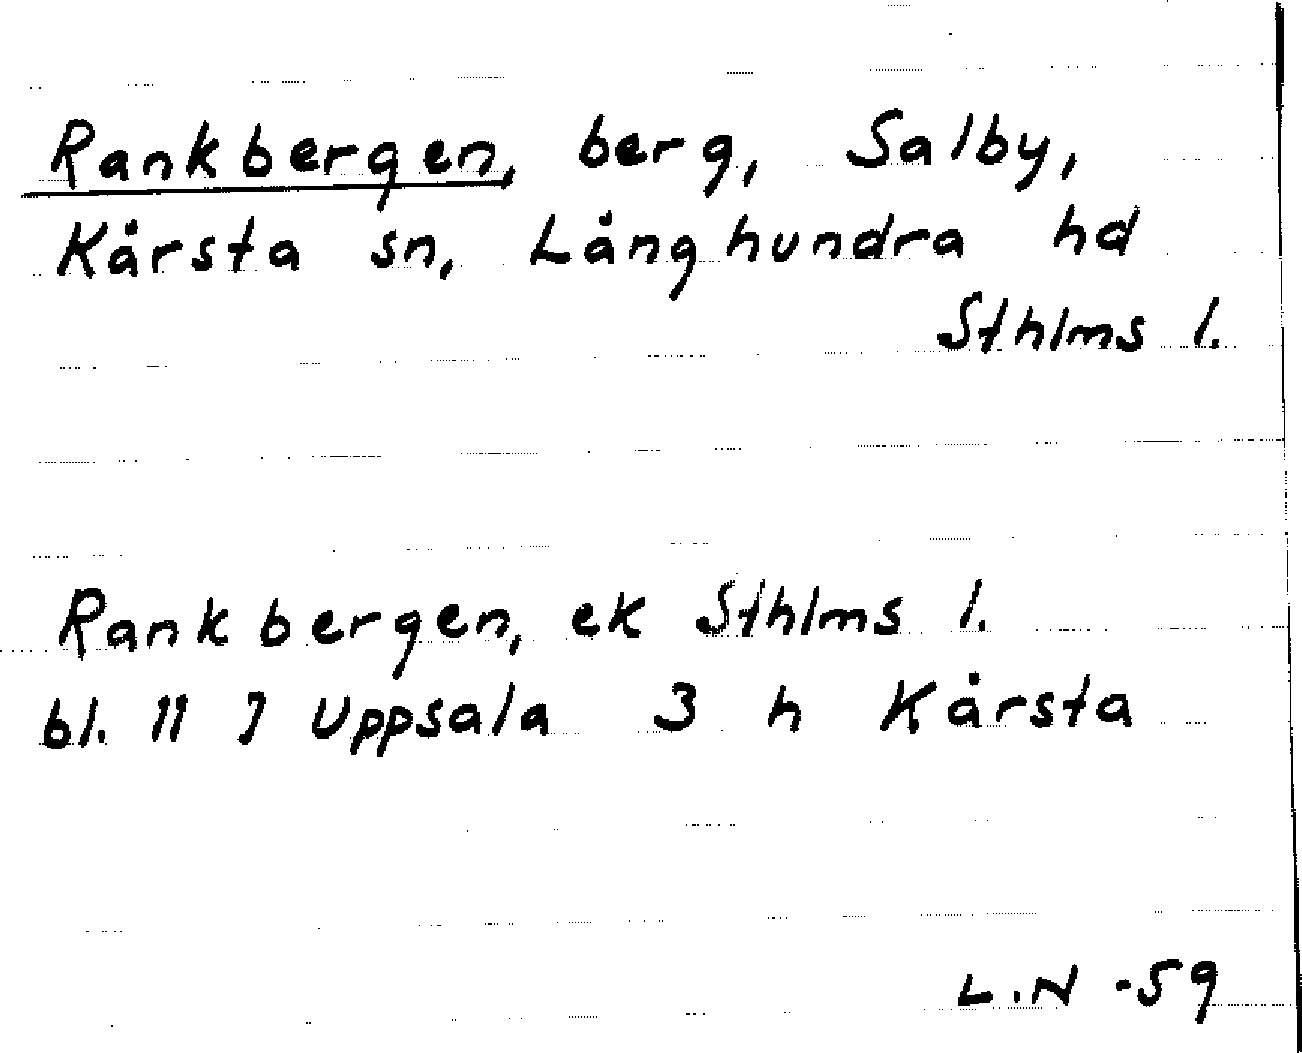 Rankbergen, berg, Salby,
Kårsta sn, Långhundra hd
Sthlms l.
Rankbergen, ek Sthlms l.
bl. 11 J Uppsala 3 h Kårsta
L.N -59